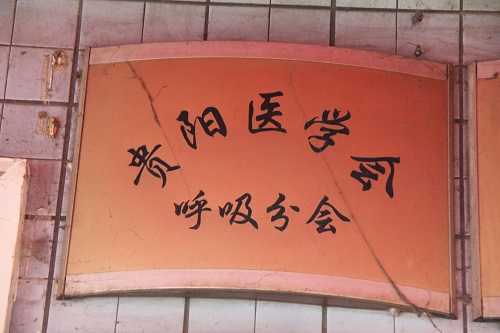 贵阳医学会
呼吸分会